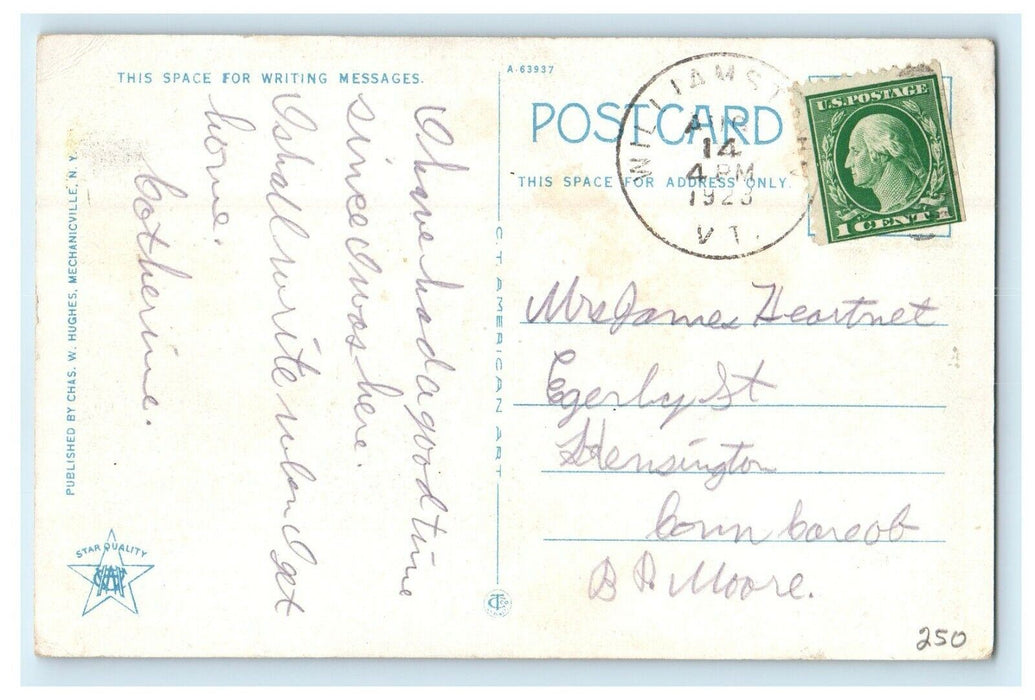 THIS SPACE FOR WRITING MESSAGES.
I have had a good time
since I was here.
I shall write when I get
home.
Catherine.
PUBLISHED BY CHAS. W. HUGHES, MECHANICVILLE, N. Y.
STAR QUALITY
C. T. AMERICAN ART
A-63937
POSTCARD
THIS SPACE FOR ADDRESS ONLY.
AUG
14
4 PM
1923
VT.
U.S. POSTAGE
1 CENT 1
Mrs James Heartnet
Egerly St
Kensington
Conn Careob
B A Moore.
250